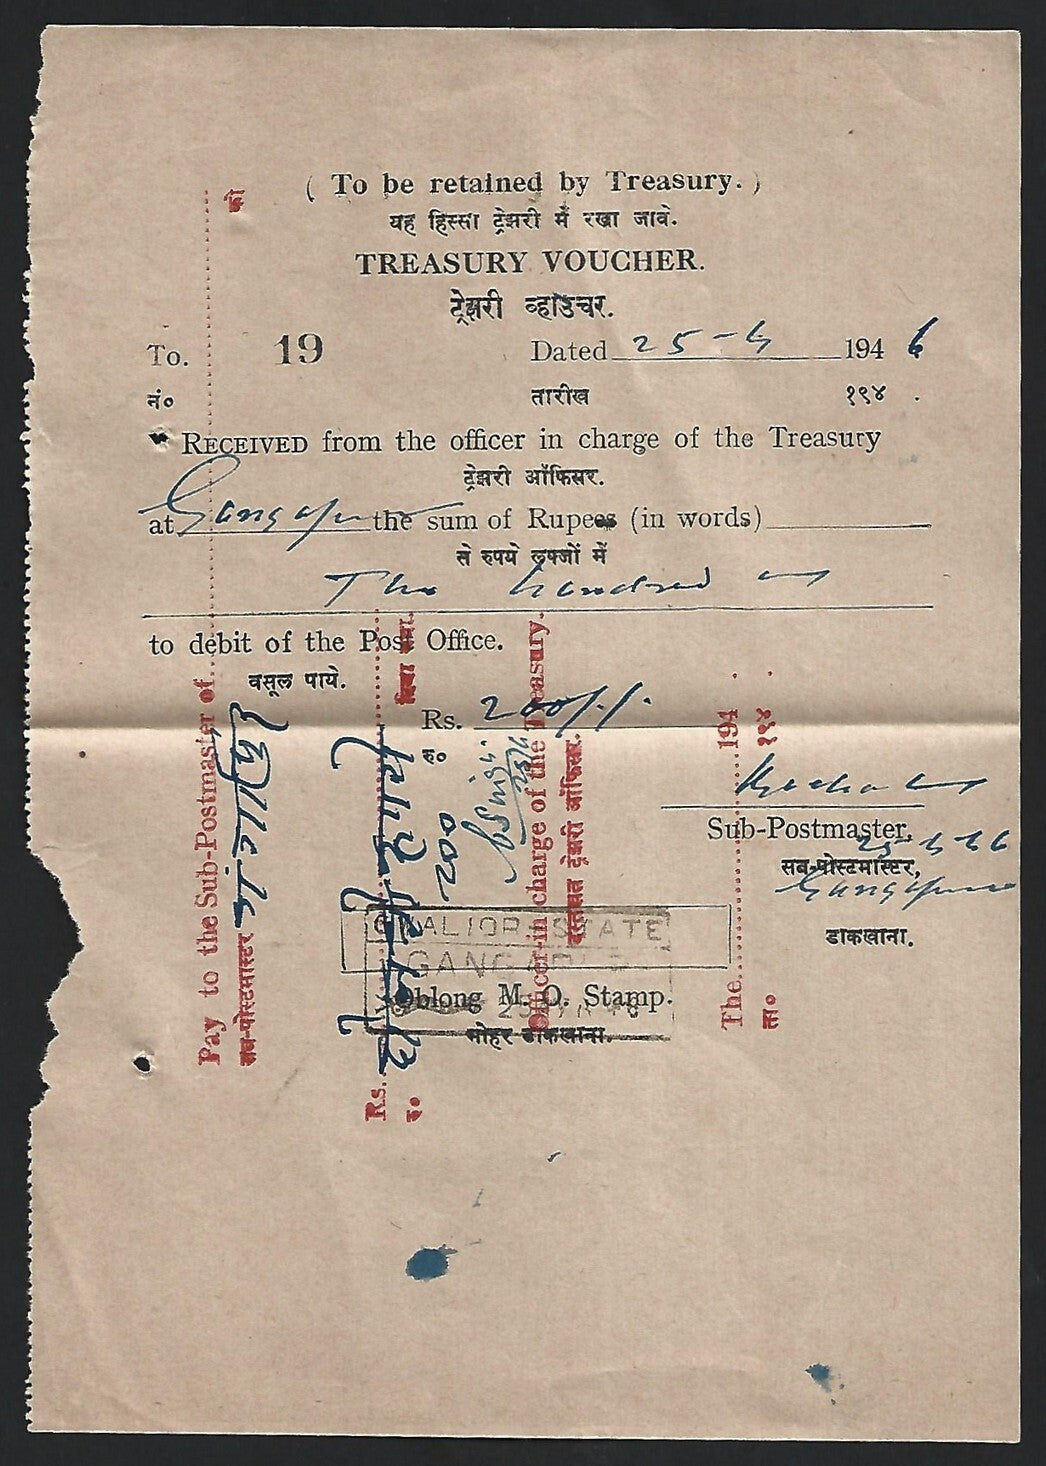 ( To be retained by Treasury. )
यह हिस्सा ट्रेझरी में रखा जावे.
TREASURY VOUCHER.
ट्रेझरी व्हाउचर.
To. 19 Dated 25-4 1946
नं० तारीख १९४ .
RECEIVED from the officer in charge of the Treasury
ट्रेझरी ऑफिसर.
at Gangapur the sum of Rupees (in words)
से रुपये लफ्जों में
Two hundred
to debit of the Post Office.
वसूल पाये.
Rs. 200/-/-
रु०
Sub-Postmaster,
सब-पोस्टमास्टर,
Gangapur
डाकखाना.
GWALIOR STATE
GANGAPUR
Oblong M. O. Stamp.
मोहर डाकखाना.
Pay to the Sub-Postmaster of
को
सब-पोस्टमास्टर गंगापुर
Rs. दो सौ रुपये
रु० 200 दिया गया.
Officer-in charge of the Treasury.
दस्तखत ट्रेझरी ऑफिसर.
The 194
ता० १९४